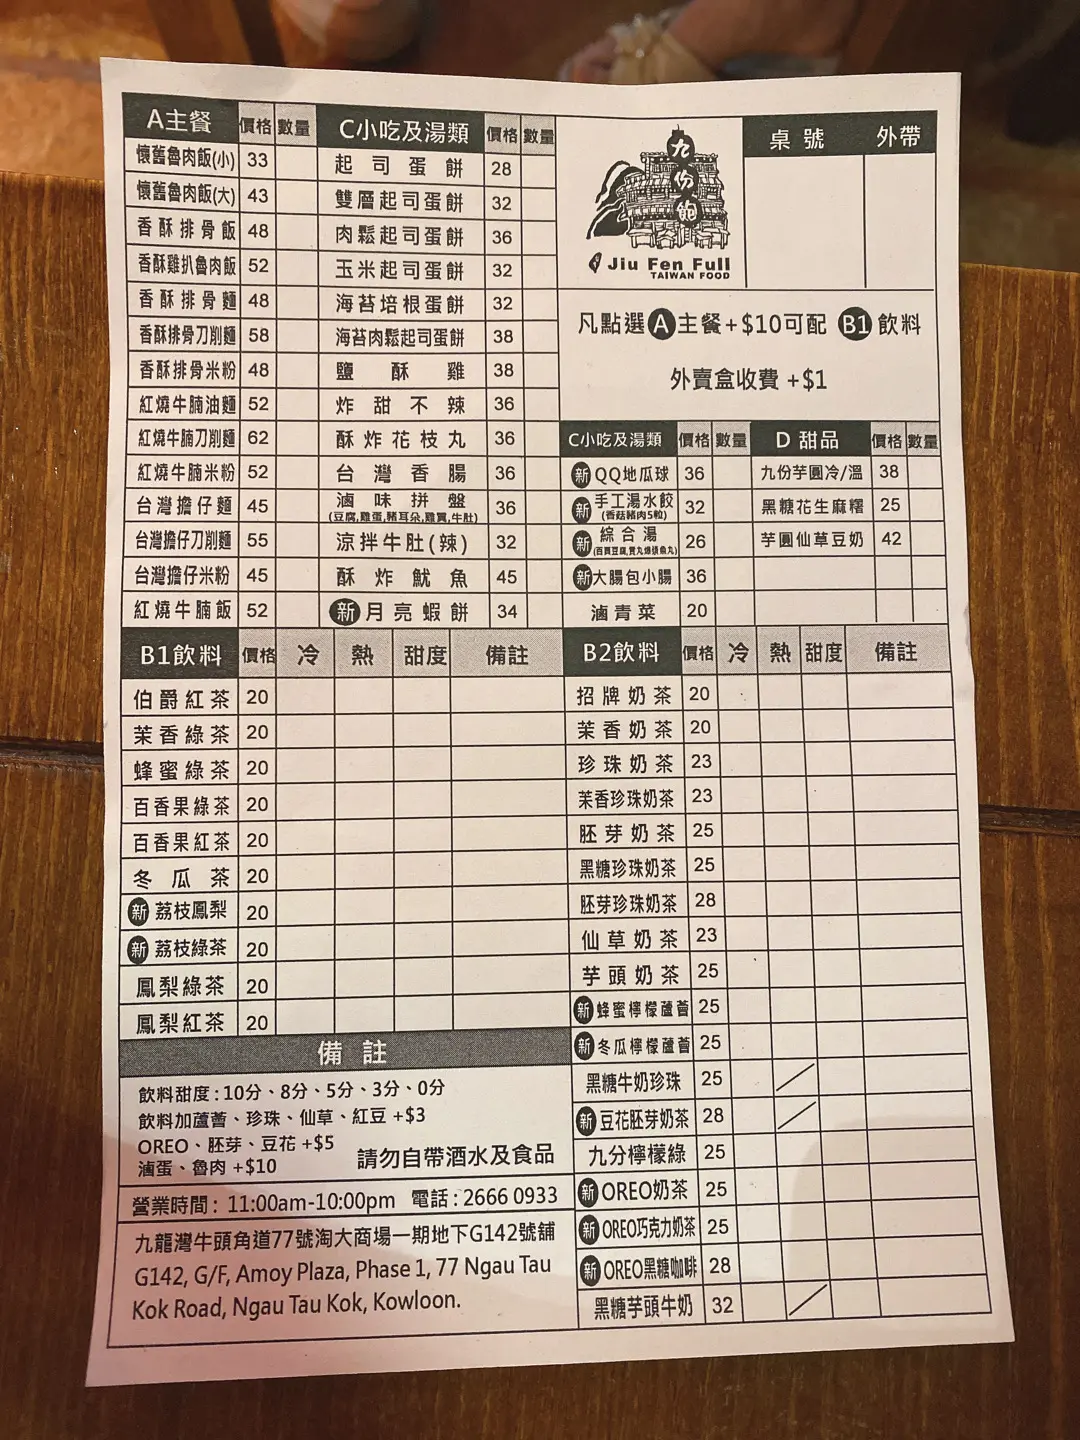 A主餐 價格 數量
懷舊魯肉飯(小) 33
懷舊魯肉飯(大) 43
香酥排骨飯 48
香酥雞扒魯肉飯 52
香酥排骨麵 48
香酥排骨刀削麵 58
香酥排骨米粉 48
紅燒牛腩油麵 52
紅燒牛腩刀削麵 62
紅燒牛腩米粉 52
台灣擔仔麵 45
台灣擔仔刀削麵 55
台灣擔仔米粉 45
紅燒牛腩飯 52
C小吃及湯類 價格 數量
起司蛋餅 28
雙層起司蛋餅 32
肉鬆起司蛋餅 36
玉米起司蛋餅 32
海苔培根蛋餅 32
海苔肉鬆起司蛋餅 38
鹽酥雞 38
炸甜不辣 36
酥炸花枝丸 36
台灣香腸 36
滷味拼盤 36
(豆腐,雞蛋,豬耳朵,雞翼,牛肚)
涼拌牛肚(辣) 32
酥炸魷魚 45
新 月亮蝦餅 34
九份飽
Jiu Fen Full
TAIWAN FOOD
桌號 外帶
凡點選 A 主餐+$10可配 B1 飲料
外賣盒收費 +$1
C小吃及湯類 價格 數量
新 QQ地瓜球 36
新 手工湯水餃 32
(香菇豬肉5粒)
新 綜合湯 26
新 大腸包小腸 36
滷青菜 20
D 甜品 價格 數量
九份芋圓冷/溫 38
黑糖花生麻糬 25
芋圓仙草豆奶 42
B1飲料 價格 冷 熱 甜度 備註
伯爵紅茶 20
茉香綠茶 20
蜂蜜綠茶 20
百香果綠茶 20
百香果紅茶 20
冬瓜茶 20
新 荔枝鳳梨 20
新 荔枝綠茶 20
鳳梨綠茶 20
鳳梨紅茶 20
B2飲料 價格 冷 熱 甜度 備註
招牌奶茶 20
茉香奶茶 20
珍珠奶茶 23
茉香珍珠奶茶 23
胚芽奶茶 25
黑糖珍珠奶茶 25
胚芽珍珠奶茶 28
仙草奶茶 23
芋頭奶茶 25
新 蜂蜜檸檬蘆薈 25
新 冬瓜檸檬蘆薈 25
黑糖牛奶珍珠 25
新 豆花胚芽奶茶 28
九分檸檬綠 25
新 OREO奶茶 25
新 OREO巧克力奶茶 25
新 OREO黑糖咖啡 28
黑糖芋頭牛奶 32
備註
飲料甜度:10分、8分、5分、3分、0分
飲料加蘆薈、珍珠、仙草、紅豆 +$3
OREO、胚芽、豆花 +$5
滷蛋、魯肉 +$10
請勿自帶酒水及食品
營業時間: 11:00am-10:00pm 電話:2666 0933
九龍灣牛頭角道77號淘大商場一期地下G142號舖
G142, G/F, Amoy Plaza, Phase 1, 77 Ngau Tau
Kok Road, Ngau Tau Kok, Kowloon.